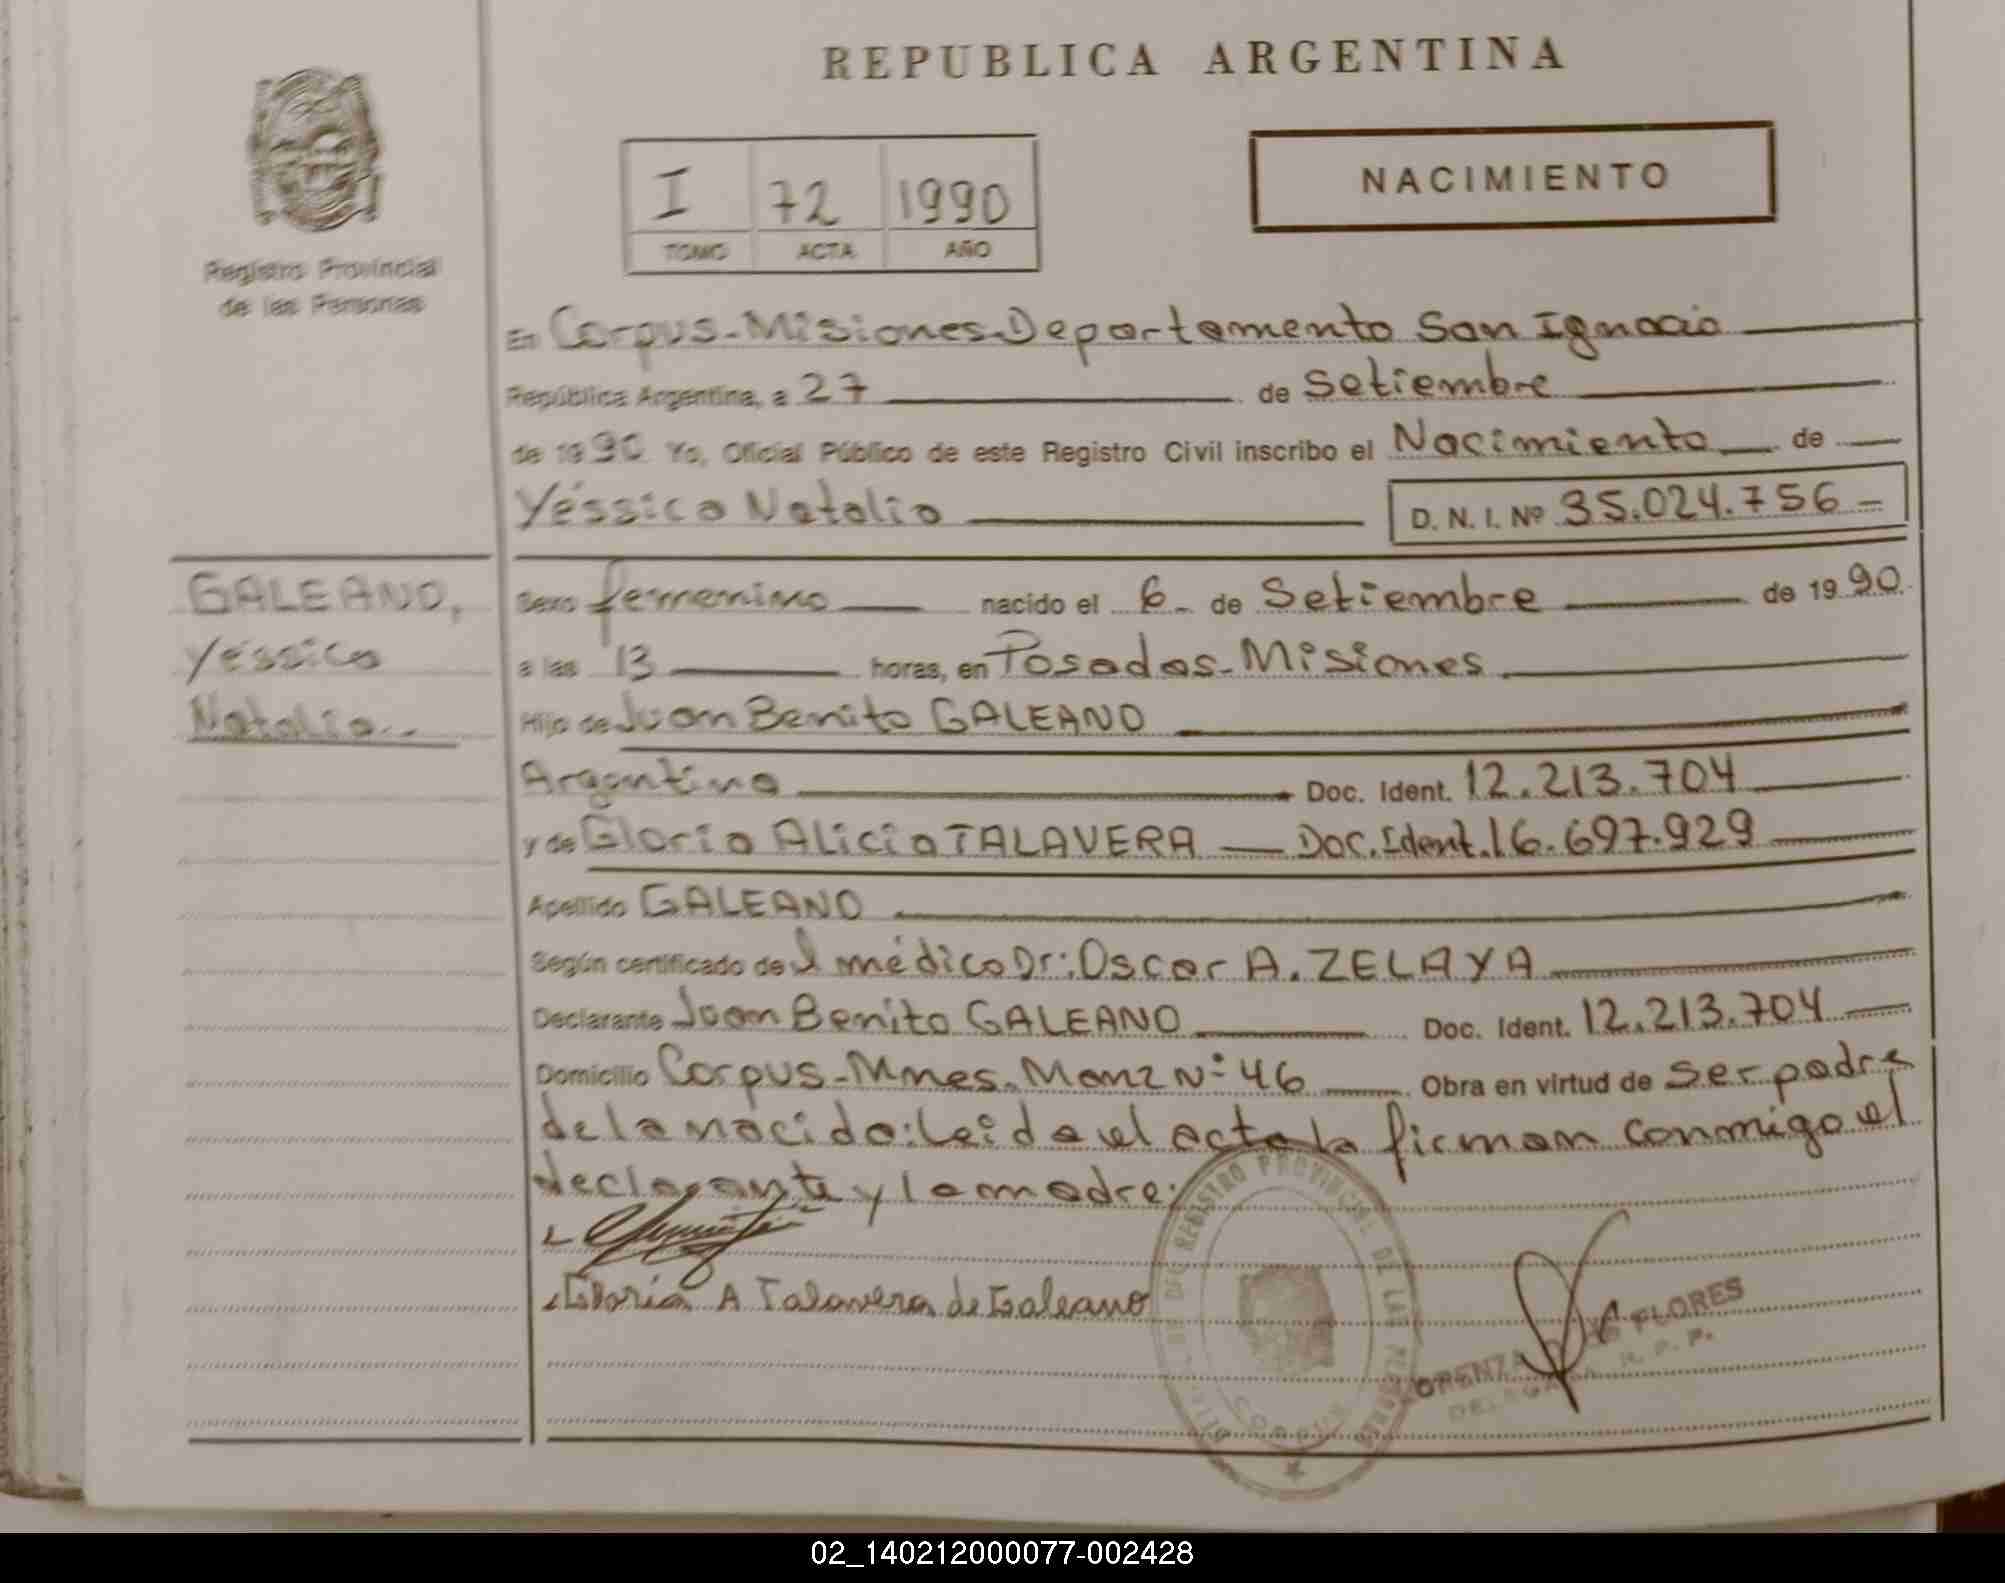 REPUBLICA ARGENTINA
Registro Provincial
de las Personas
I 72 1990
TOMO ACTA AÑO
NACIMIENTO
En Corpus-Misiones-Departamento San Ignacio
República Argentina, a 27 de Setiembre
de 1990 Yo, Oficial Público de este Registro Civil inscribo el Nacimiento de
Yéssica Natalia D. N. I. Nº 35.024.756-
GALEANO,
Yéssica
Natalia.-
Sexo femenino nacido el 6- de Setiembre de 1990.
a las 13 horas, en Posadas-Misiones
Hijo de Juan Benito GALEANO
Argentino Doc. Ident. 12.213.704
y de Gloria Alicia TALAVERA — Doc. Ident. 16.697.929
Apellido GALEANO
Según certificado del médico Dr: Oscar A. ZELAYA
Declarante Juan Benito GALEANO Doc. Ident. 12.213.704
Domicilio Corpus-Mnes. Manz Nº 46 Obra en virtud de ser padre
de la nacida: Leida el acta la firman conmigo el
declarante y la madre:
Gloria A Talavera de Galeano
REGISTRO PROVINCIAL DE LAS PERSONAS
CORPUS
FLORES
R. P. P.
02_140212000077-002428